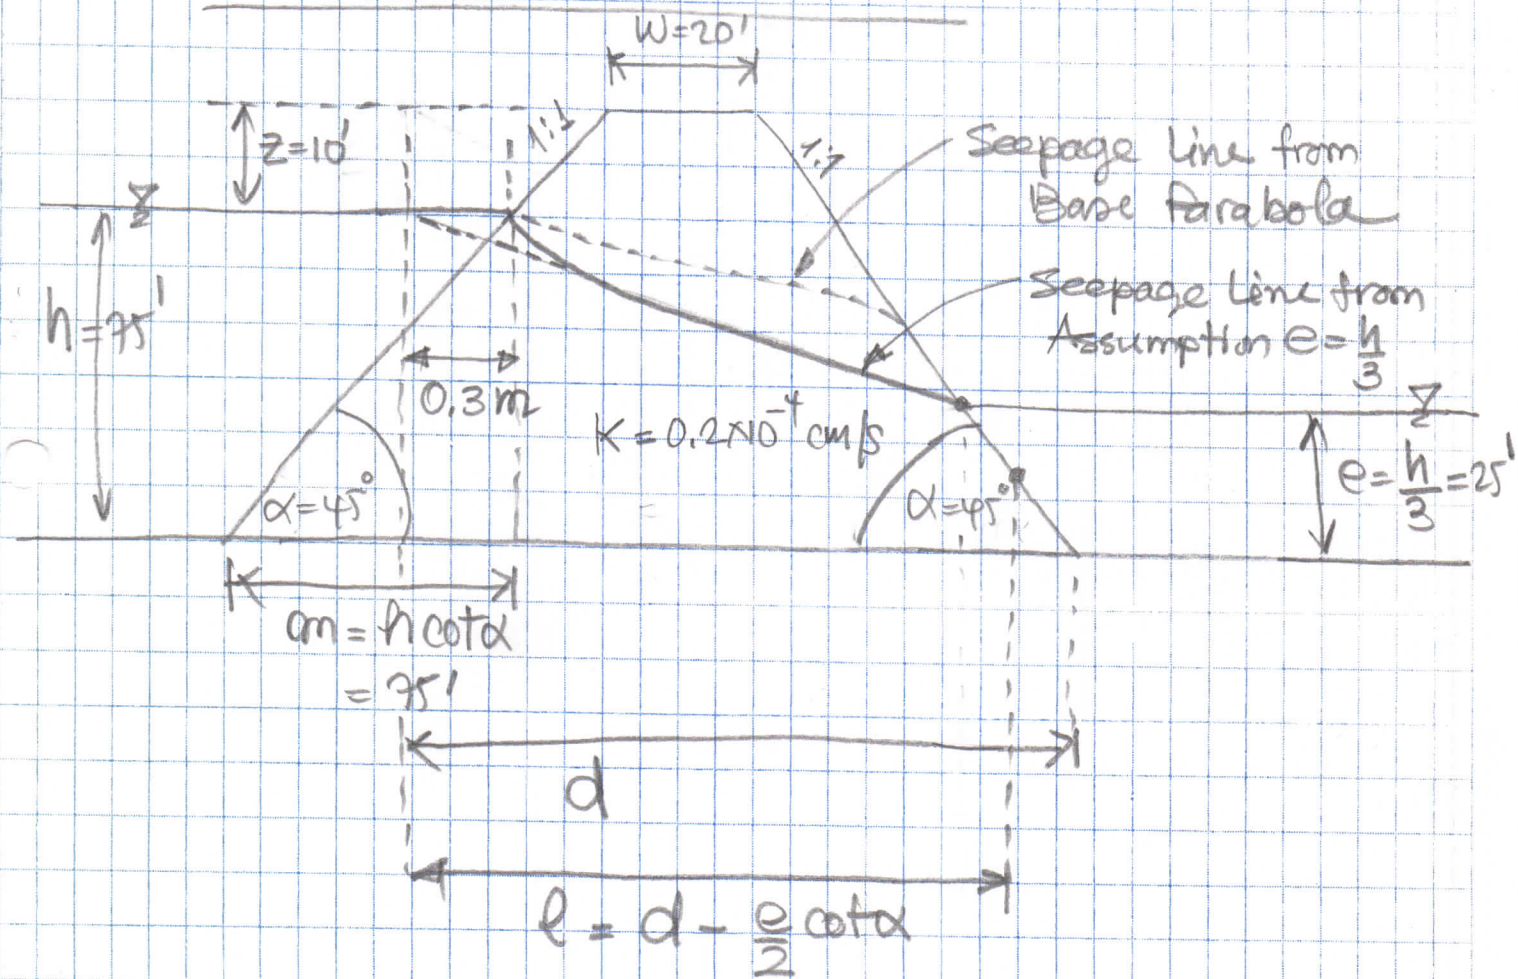 W=20'
1:1
1:1
z=10'
Seepage Line from
Base Parabola
h=75'
Seepage Line from
Assumption e=h/3
0.3m
K=0.2×10⁻⁴cm/s
e=h/3=25'
α=45°
α=45°
m=hcotα
=75'
d
l=d-e/2cotα